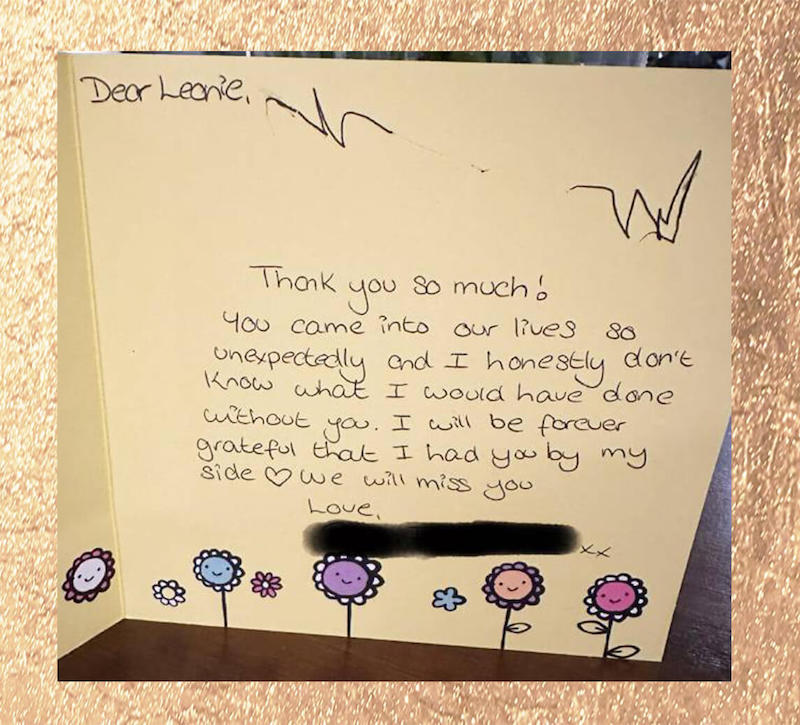 Dear Leonie,
Thank you so much!
You came into our lives so
unexpectedly and I honestly don't
know what I would have done
without you. I will be forever
grateful that I had you by my
side ♡ we will miss you
Love,
xx